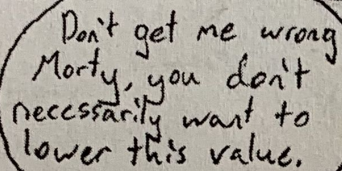 Don't get me wrong
Morty, you don't
necessarily want to
lower this value.